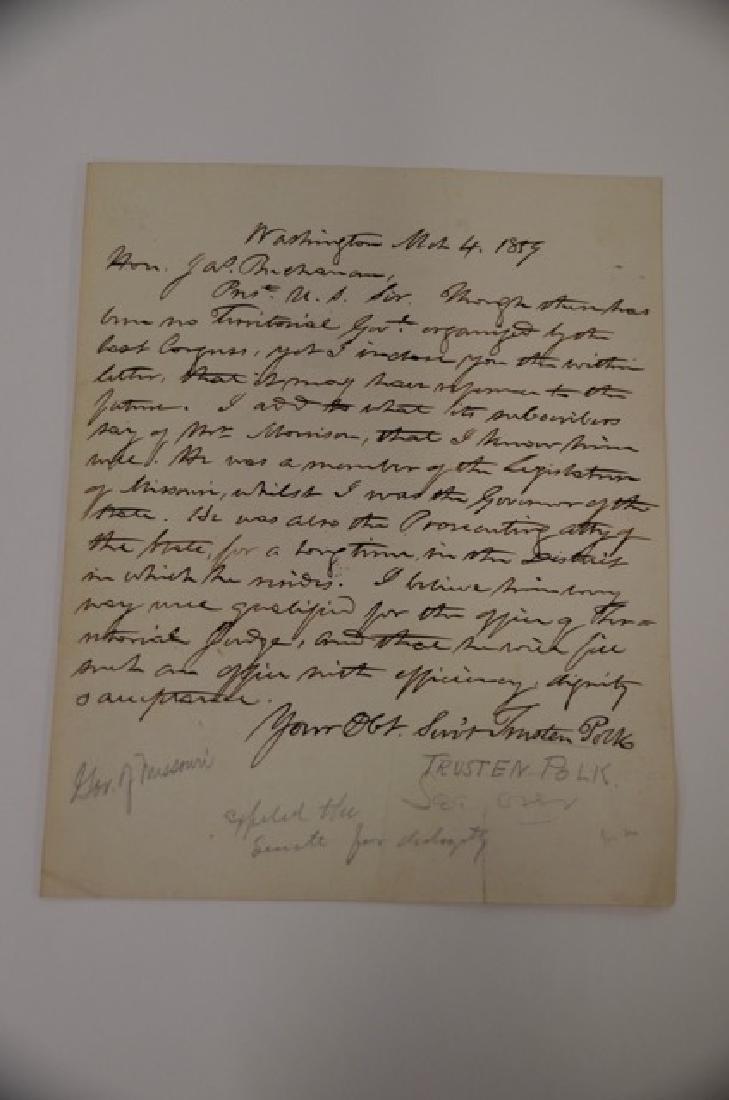 Washington Mch 4. 1859
Hon. Jas. Buchanan,
Prest. U. S. Sir. Though there has
been no Territorial Govt. organized by the
last Congress, yet I inclose you the within
letter, that it may have reference to the
future. I add to what its subscribers
say of Mr. Morrison, that I know him
well. He was a member of the Legislature
of Missouri, whilst I was the Governor of the
State. He was also the Prosecuting atty of
the State, for a long time, in the District
in which he resides. I believe him every
way well qualified for the office of Terri-
torial Judge, and that he will fill
such an office with efficiency, dignity
& acceptance.
Your Obt. Servt Trusten Polk
Gov. of Missouri
TRUSTEN POLK.
over
expelled the
Senate for disloyalty